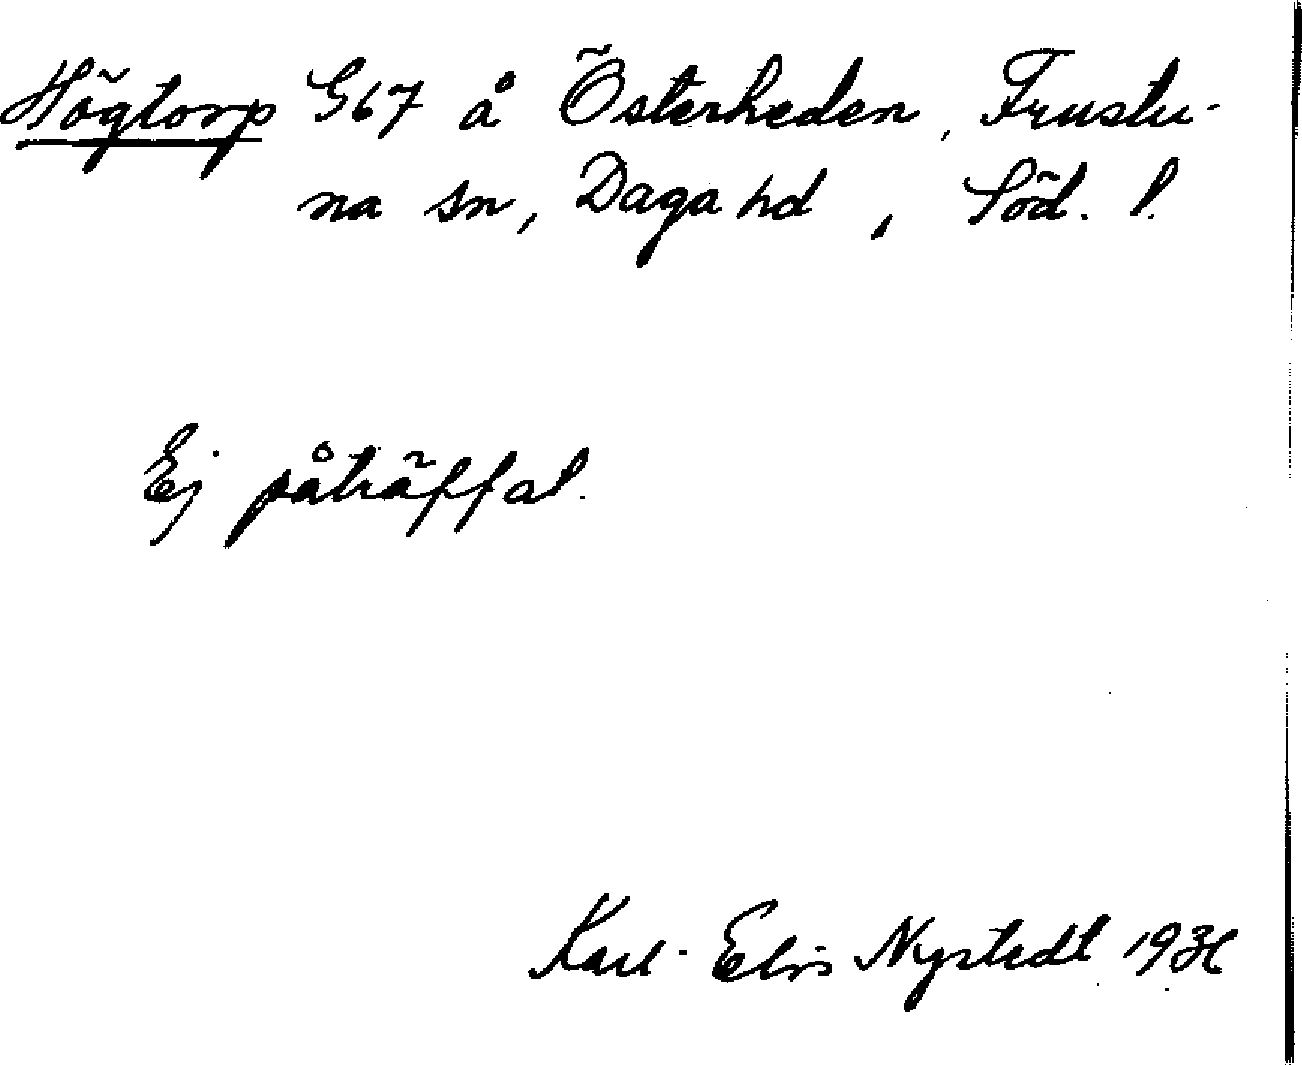 Högtorp G67 å Österheden, Frustu-
na sn, Daga hd, Söd. l.
Ej påträffat.
Karl-Elis Nystedt 1936